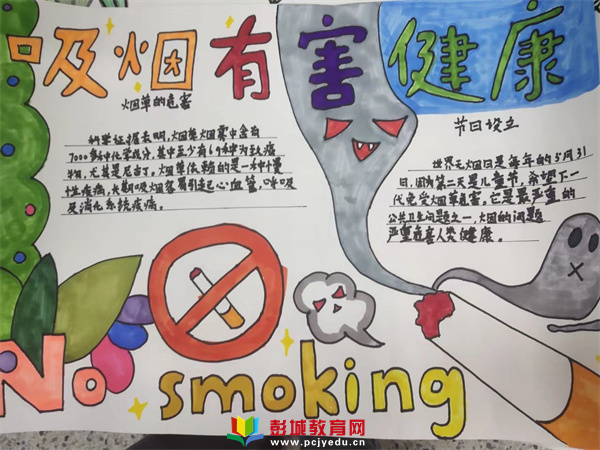 吸烟有害健康
烟草的危害
科学证据表明，烟草烟雾中含有
7000多种化学成分，其中至少有69种为致癌
物，尤其是尼古丁，烟草依赖的是一种慢
性疾病，长期吸烟容易引起心血管，呼吸
及消化系统疾病。
节日设立
世界无烟日是每年的5月31
日，因为第二天是儿童节，希望下一
代免受烟草危害，它是最严重的
公共卫生问题之一，烟的问题
严重危害人类健康。
No smoking
彭城教育网
www.pcjyedu.cn